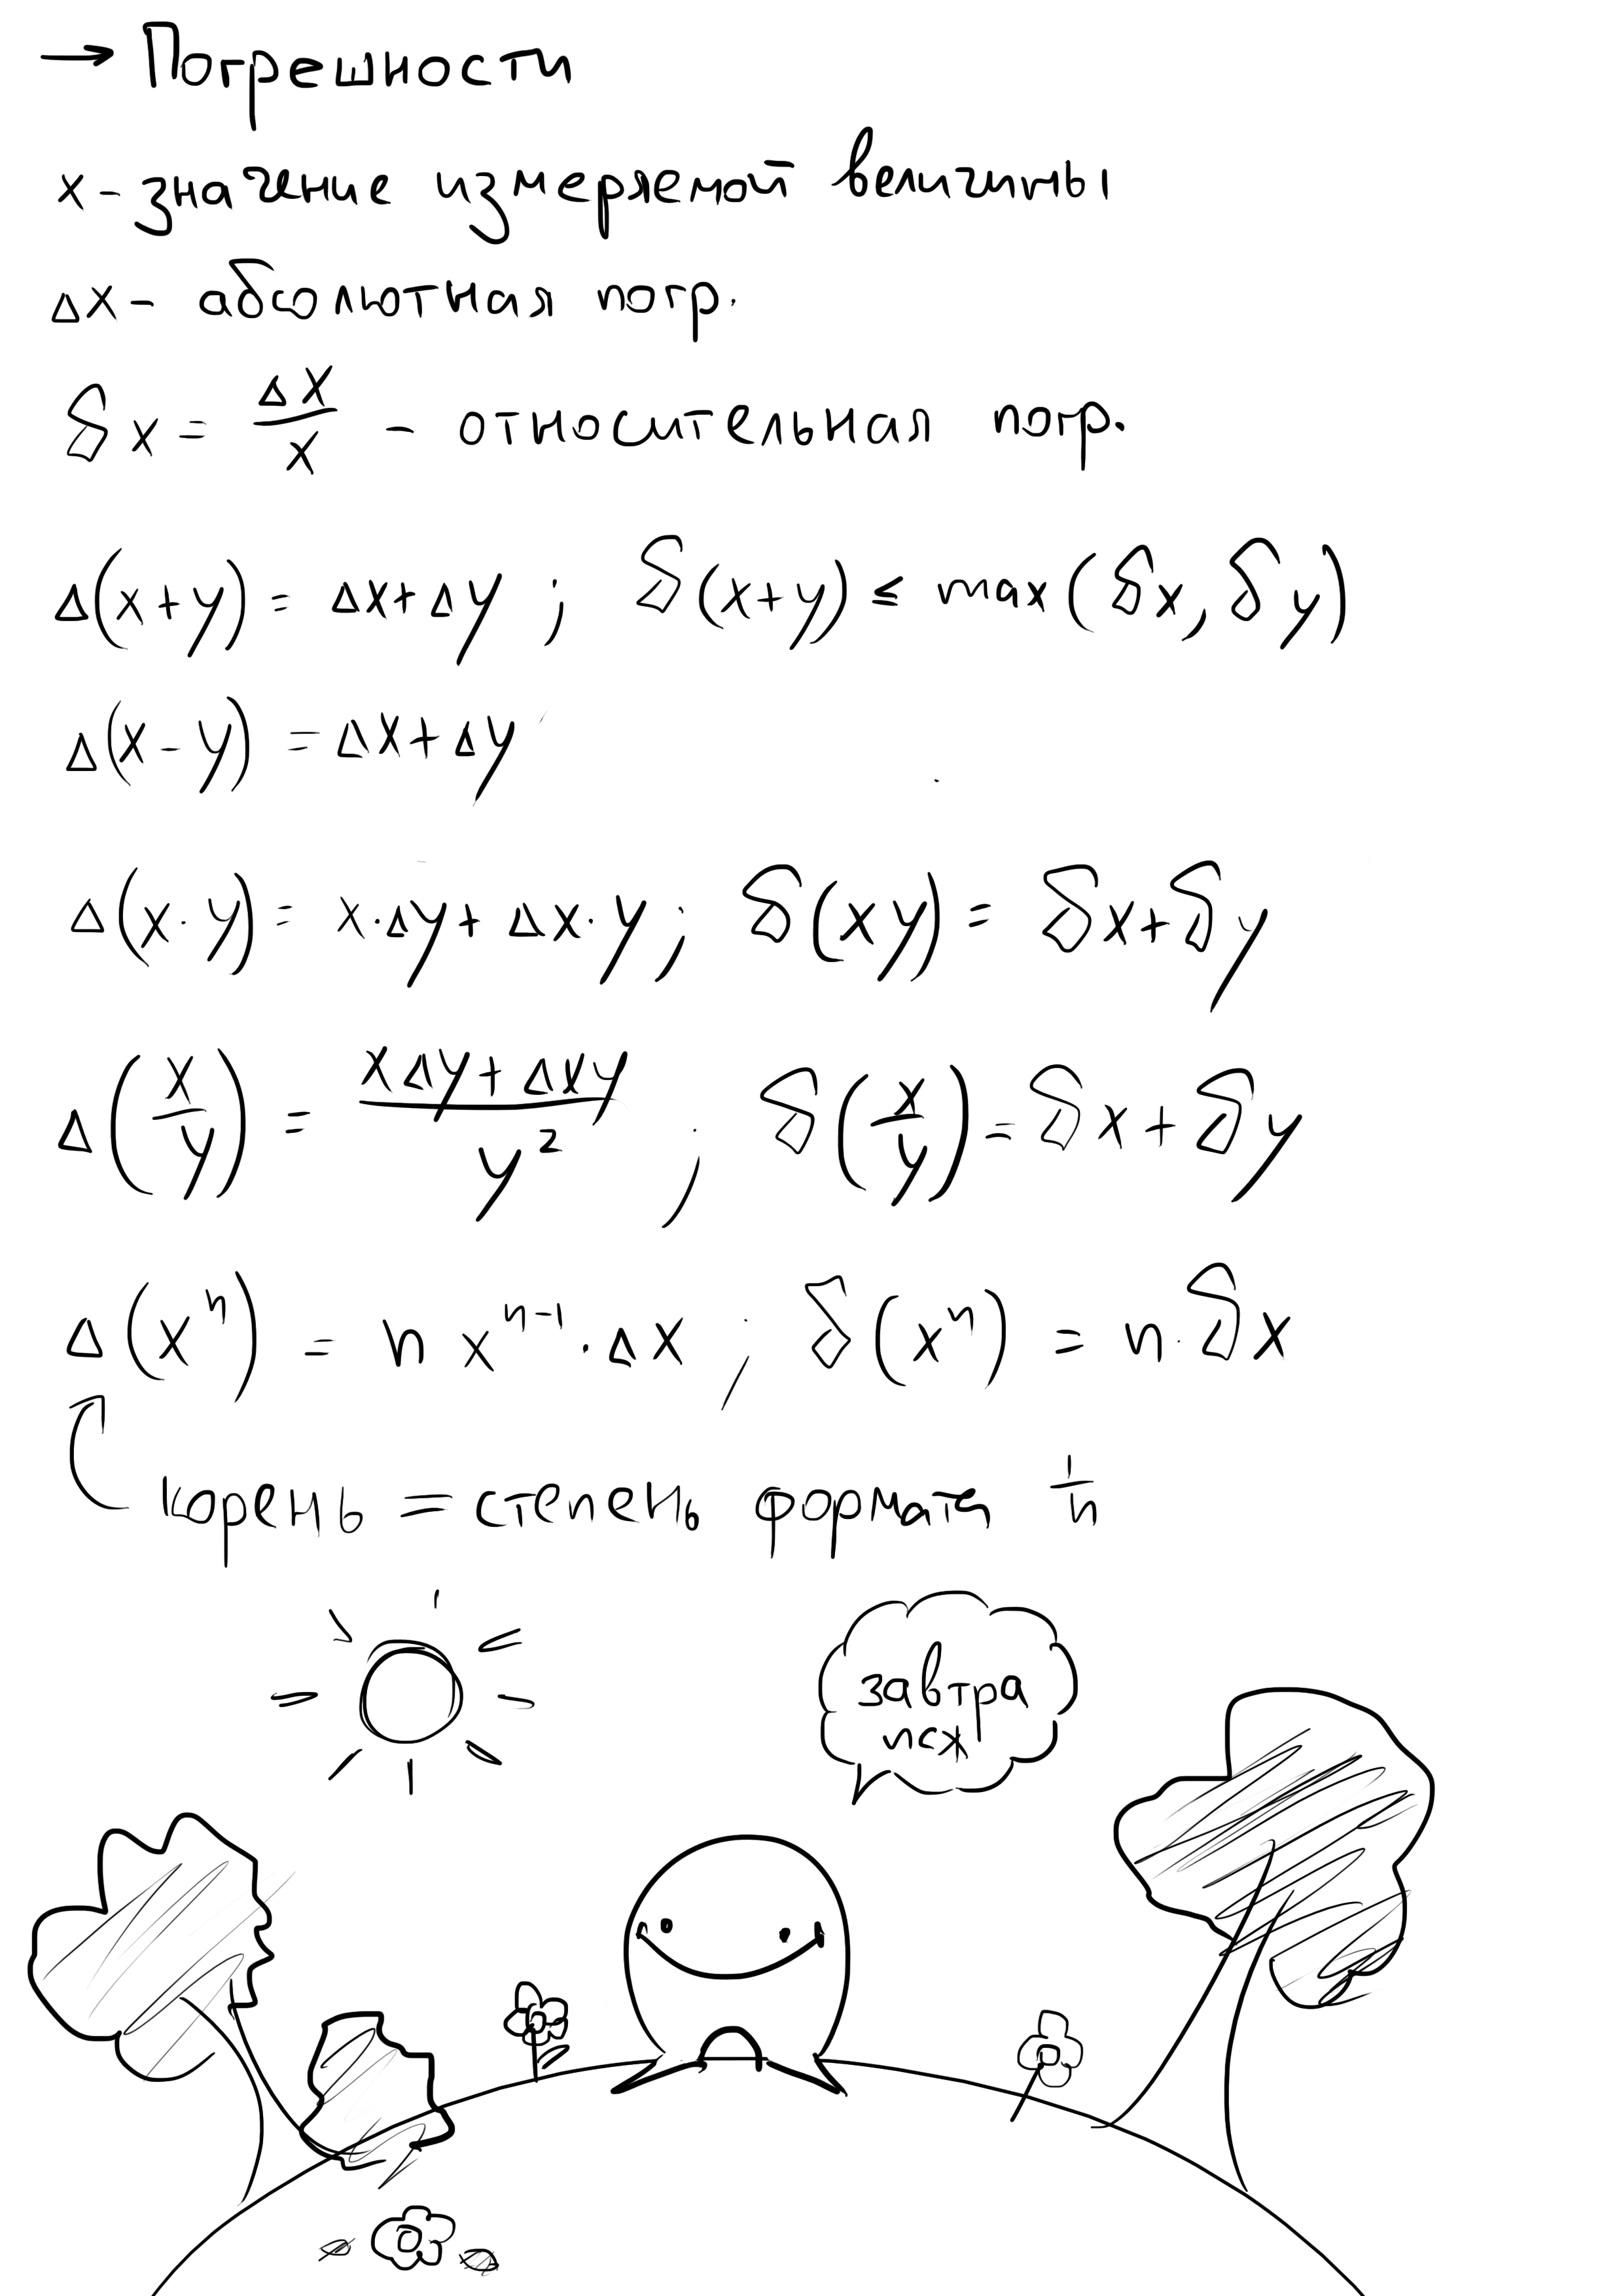 → Погрешности
x - значение измеряемой величины
Δx - абсолютная погр.
δx = Δx/x - относительная погр.
Δ(x+y) = Δx+Δy ; δ(x+y) ≤ max(δx, δy)
Δ(x-y) = Δx+Δy
Δ(x·y) = x·Δy + Δx·y ; δ(xy) = δx+δy
Δ(x/y) = (xΔy + Δxy)/y² ; δ(x/y) = δx + δy
Δ(xⁿ) = n xⁿ⁻¹·Δx ; δ(xⁿ) = n·δx
корень = степень формата 1/n
завтра
псж